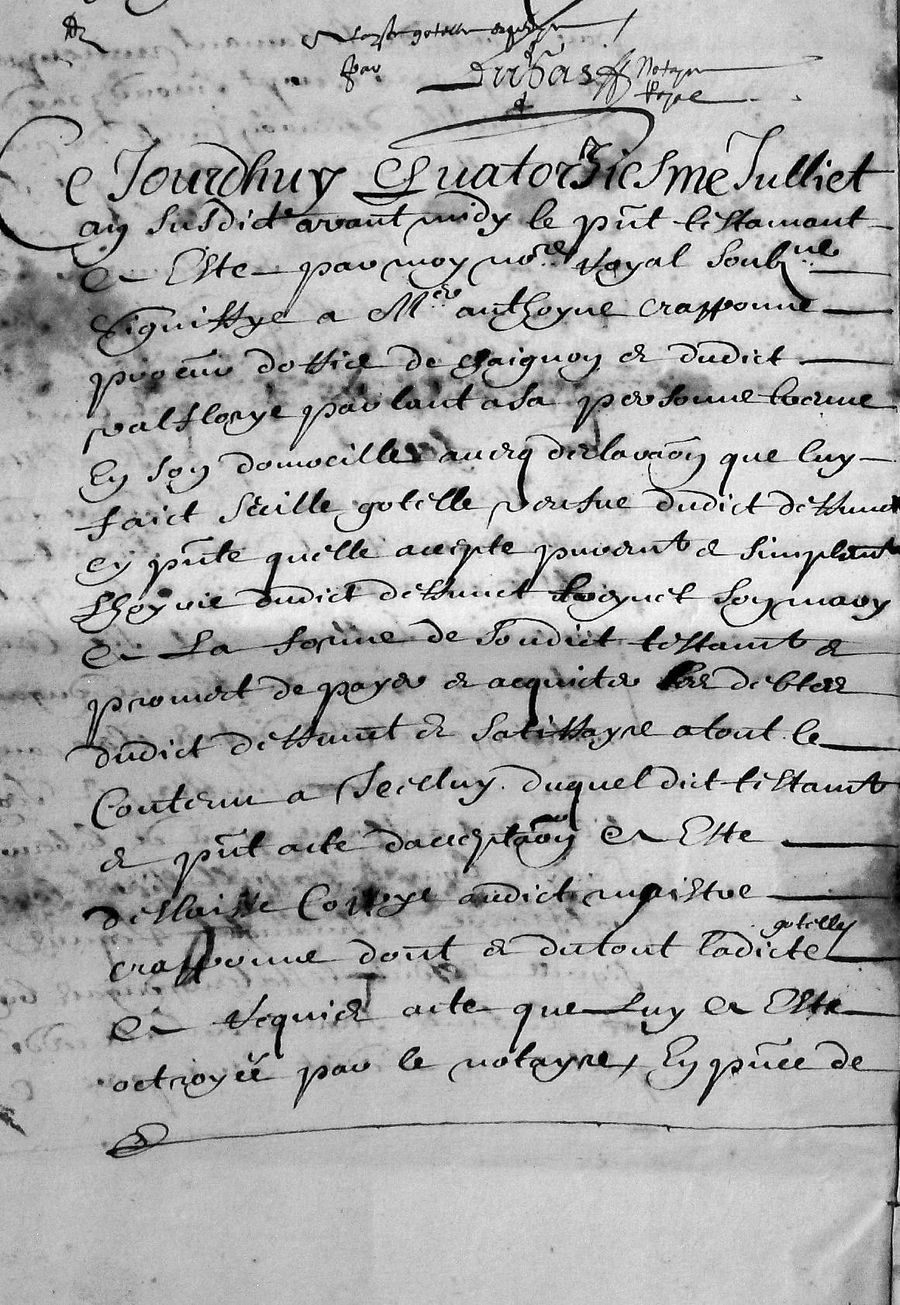 gotelle
par Duchas Notayre
Royal
Ce Jourdhuy Quatorziesme Julliet
an susdict avant midy le pnt testamant
a Este par moy nore Royal soubzne
Signiffye a Mere anthoyne crapponne
procur doffice de Saignon & dudict
valflorye parlant a sa personne trouve
En son domicille avecq declaraon que luy
faict Sebille gotelle veufve dudict deffunct
cy pnte quelle accepte puremt & simplemt
Lhoyrie dudict deffunct son mary
a La forme de Sondict testamt &
promect de payer & acquicter les debtes
dudict deffunct & satiffayre a tout le
Contenu a Icelluy duquel dict testamt
& pnt acte dacceptaon a Este
dellaisse Coppye audict maistre
crapponne dont & du tout ladicte gotelle
a Requis acte que Luy a Este
octroyée par le notayre, En pnce de